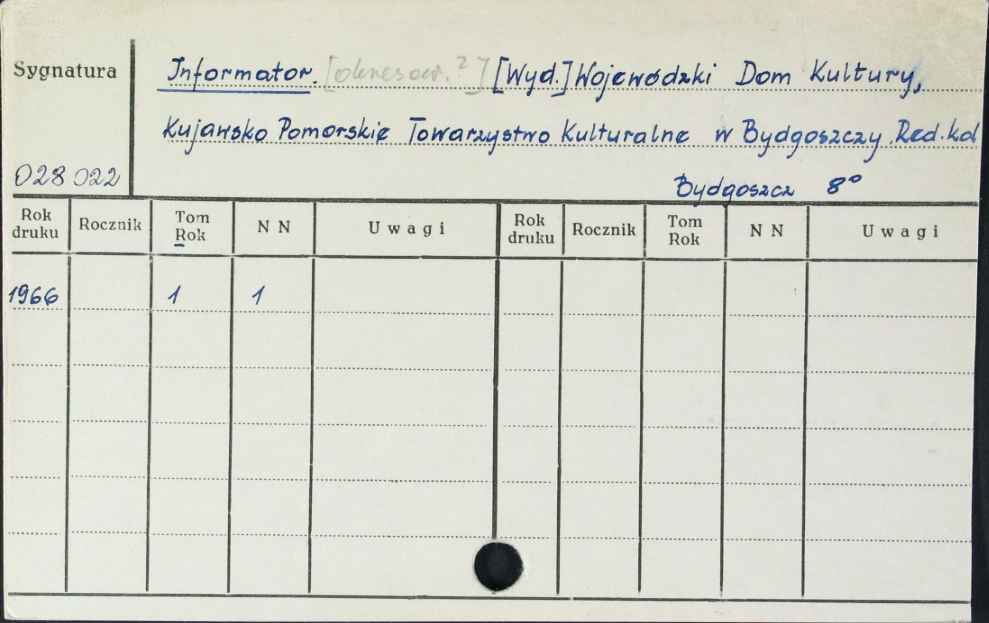 Sygnatura
Informator. [okresow. ?] [Wyd.] Wojewódzki Dom Kultury,
Kujawsko Pomorskie Towarzystwo Kulturalne w Bydgoszczy. Red. kol
028 022
Bydgoszcz 8°
Rok druku Rocznik Tom Rok N N Uwagi Rok druku Rocznik Tom Rok N N Uwagi
1966 1 1